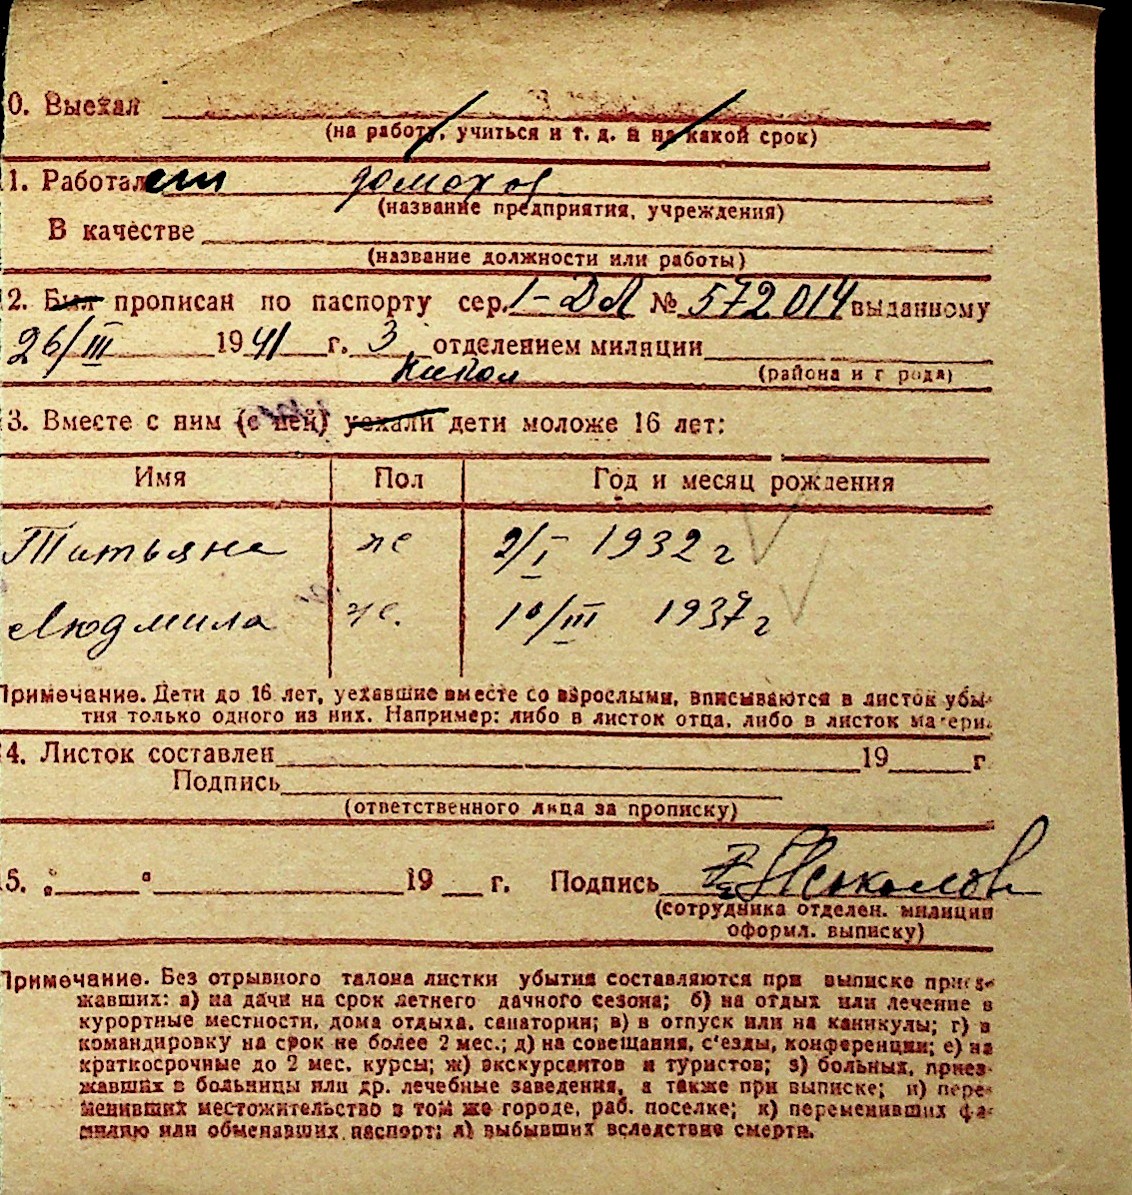 0. Выехал
(на работу, учиться и т. д. и на какой срок)
1. Работал
(название предприятия, учреждения)
В качестве
(название должности или работы)
2. Был прописан по паспорту сер. 1-ДЛ № 572014 выданному
26/III 1941 г. 3 отделением милиции
(района и города)
3. Вместе с ним (с ней) уехали дети моложе 16 лет:
Имя Пол Год и месяц рождения
Татьяна ж 2/I 1932 г
Людмила ж. 10/III 1937 г
Примечание. Дети до 16 лет, уехавшие вместе со взрослыми, вписываются в листок убы-
тия только одного из них. Например: либо в листок отца, либо в листок матери.
4. Листок составлен 19 г
Подпись
(ответственного лица за прописку)
5. " " 19 г. Подпись Соколов
(сотрудника отделен. милиции
оформл. выписку)
Примечание. Без отрывного талона листки убытия составляются при выписке приез-
жавших: а) на дачи на срок летнего дачного сезона; б) на отдых или лечение в
курортные местности, дома отдыха, санатории; в) в отпуск или на каникулы; г) в
командировку на срок не более 2 мес.; д) на совещания, с'езды, конференции; е) на
краткосрочные до 2 мес. курсы; ж) экскурсантов и туристов; з) больных, приез-
жавших в больницы или др. лечебные заведения, а также при выписке; и) пере-
менивших местожительство в том же городе, раб. поселке; к) переменивших фа-
милию или обменявших паспорт; л) выбывших вследствие смерти.